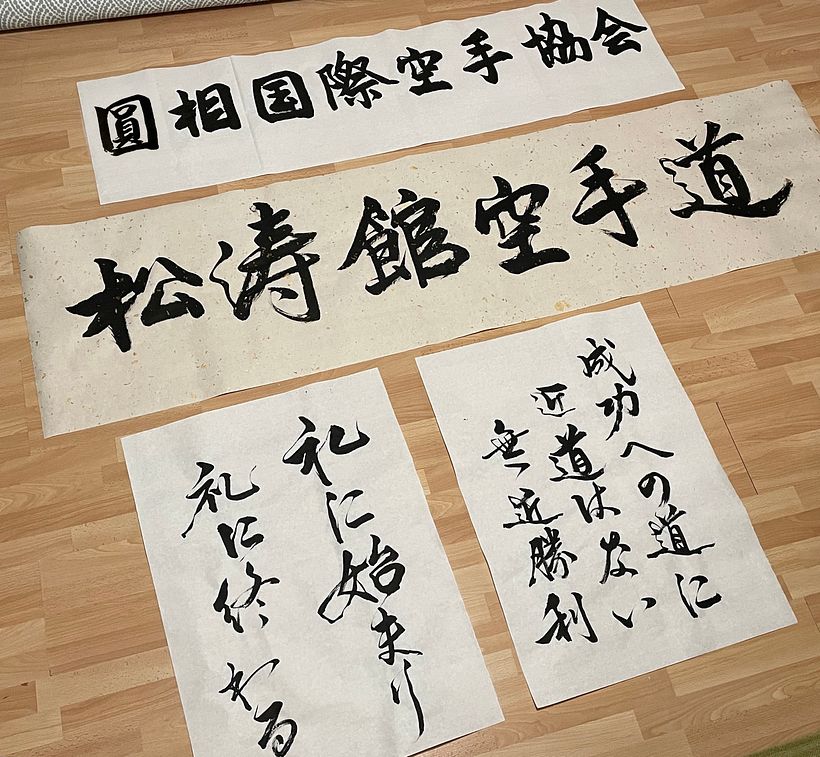 圓相国際空手協会
松涛館空手道
成功への道に
近道はない
無近勝利
礼に始まり
礼に終わる